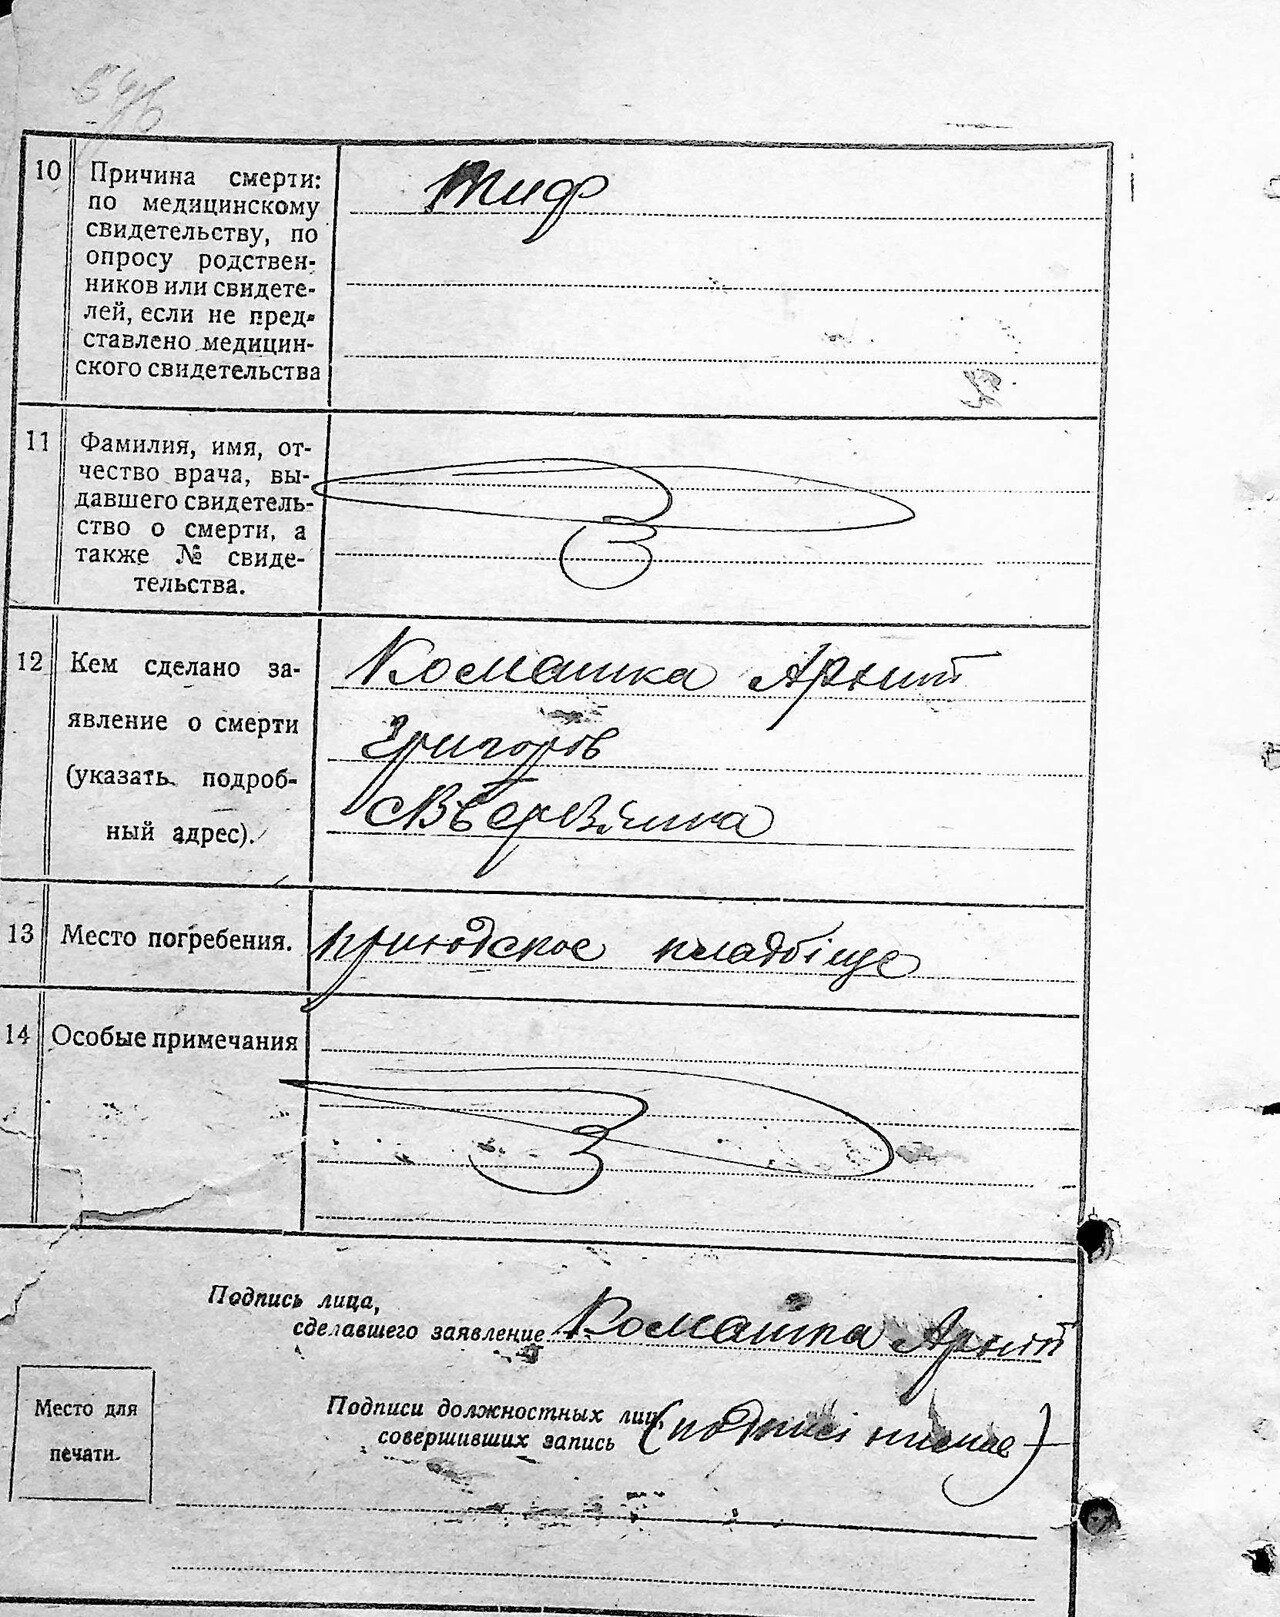 10 Причина смерти:
по медицинскому
свидетельству, по
опросу родствен-
ников или свидете-
лей, если не пред-
ставлено медицин-
ского свидетельства
тиф
11 Фамилия, имя, от-
чество врача, вы-
давшего свидетель-
ство о смерти, а
также № свиде-
тельства.
12 Кем сделано за-
явление о смерти
(указать подроб-
ный адрес).
Комашка
Григоров
13 Место погребения.
кладбіще
14 Особые примечания
Подпись лица,
сделавшего заявление Комашка
Подписи должностных лиц,
совершивших запись (подписі
Место для
печати.